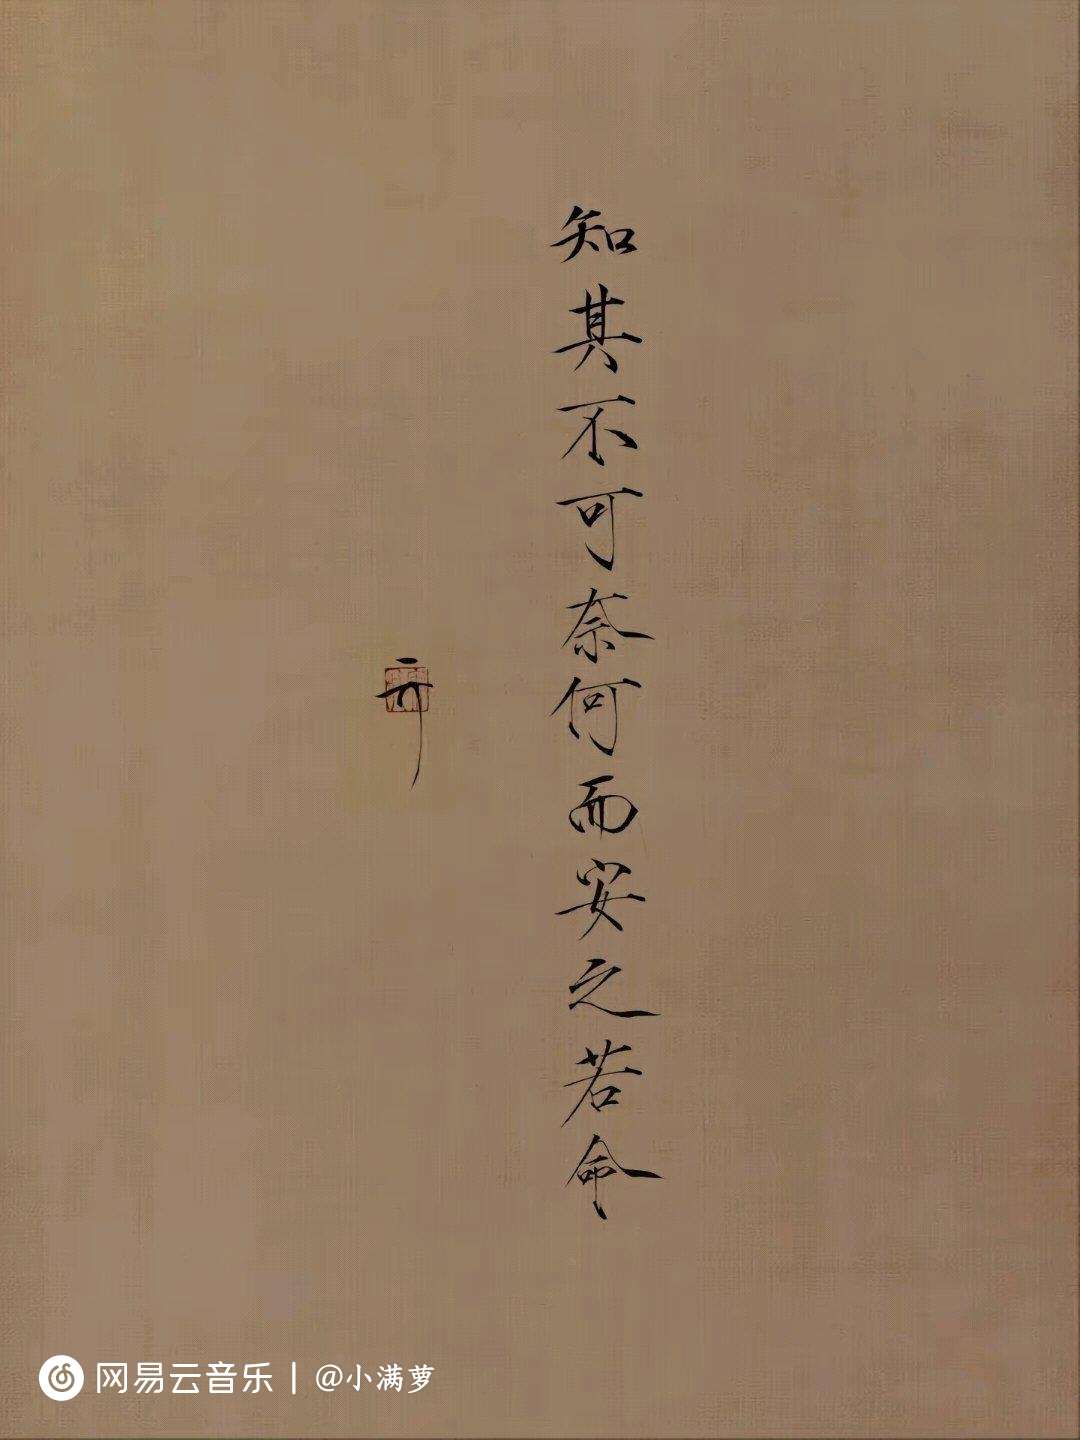 知其不可奈何而安之若命
网易云音乐 | @小满萝